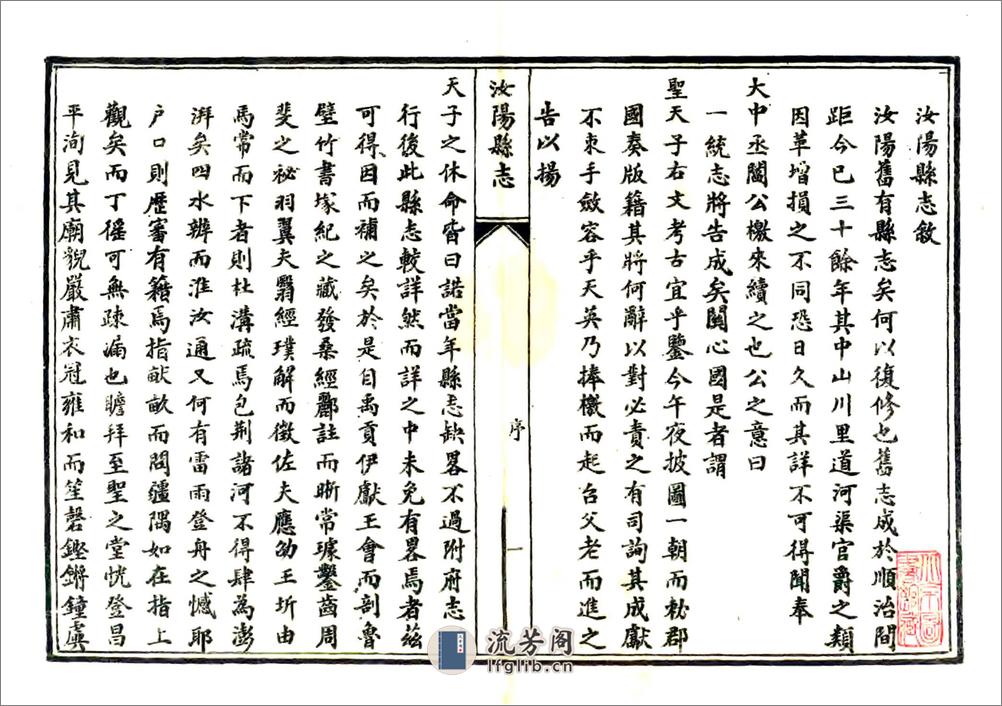 汝陽縣志敘
汝陽舊有縣志矣何以復修也舊志成於順治間
距今已三十餘年其中山川里道河渠官爵之類
因革增損之不同恐日久而其詳不可得聞奉
大中丞閻公檄來續之也公之意曰
一統志將告成矣關心國是者謂
聖天子右文考古宜乎鑒今午夜披圖一朝而秘郡
國奏版籍其將何辭以對必責之有司詢其成獻
不束手斂容乎天英乃捧檄而起召父老而進之
告以揚
汝陽縣志
序
一
天子之休命皆曰諾當年縣志缺畧不過附府志
行後此縣志較詳然而詳之中未免有畧焉者茲
可得因而補之矣於是自禹貢伊獻王會而剖魯
壁竹書塚紀之藏發桑經酈註而晰常璩鑿齒周
斐之祕羽翼夫翳經璞解而徵佐夫應劭王圻由
馬常而下者則杜溝疏焉包荆諸河不得肆為澎
湃矣四水辨而淮汝通又何有雷雨登舟之憾耶
户口則歷審有籍焉指畝而閭疆隅如在指上
觀矣而丁徭可無疎漏也瞻拜至聖之堂恍登昌
平洵見其廟貌嚴肅衣冠雍和而笙磬鏗鏘鐘虡
流芳阁
lfglib.cn